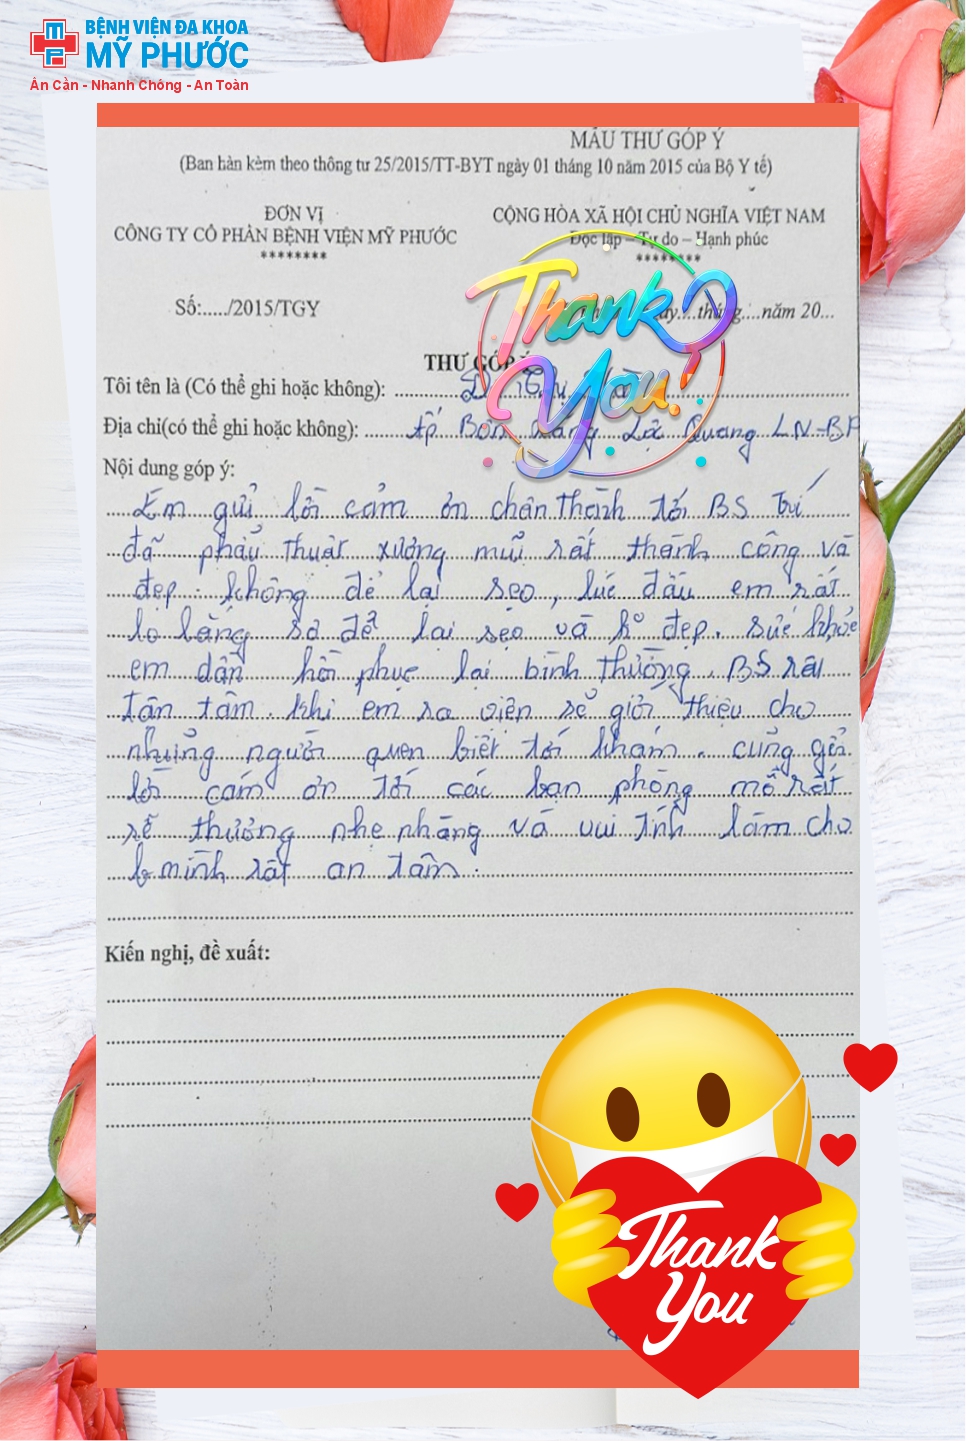 BỆNH VIỆN ĐA KHOA
MỸ PHƯỚC
Ân Cần - Nhanh Chóng - An Toàn
MẪU THƯ GÓP Ý
(Ban hàn kèm theo thông tư 25/2015/TT-BYT ngày 01 tháng 10 năm 2015 của Bộ Y tế)
ĐƠN VỊ
CÔNG TY CỔ PHẦN BỆNH VIỆN MỸ PHƯỚC
********
CỘNG HÒA XÃ HỘI CHỦ NGHĨA VIỆT NAM
Độc lập – Tự do – Hạnh phúc
********
Số:...../2015/TGY
....tháng....năm 20...
Thank
You!
THƯ GÓP Ý
Tôi tên là (Có thể ghi hoặc không): Thị
Địa chỉ(có thể ghi hoặc không): ấp Bồn Lộc Quang LN-BP
Nội dung góp ý:
Em gửi lời cảm ơn chân thành tới BS Trí
đã phẩu thuật xương mũi rất thành công và
đẹp. không để lại sẹo, lúc đầu em rất
lo lắng sợ để lại sẹo và ko đẹp. sức khỏe
em dần hồi phục lại bình thường. BS rất
tận tâm. khi em ra viện sẽ giới thiệu cho
những người quen biết tới khám. cũng gởi
lời cám ơn tới các bạn phòng mổ rất
rễ thương nhẹ nhàng và vui tính làm cho
mình rất an tâm.
Kiến nghị, đề xuất:
Thank
You